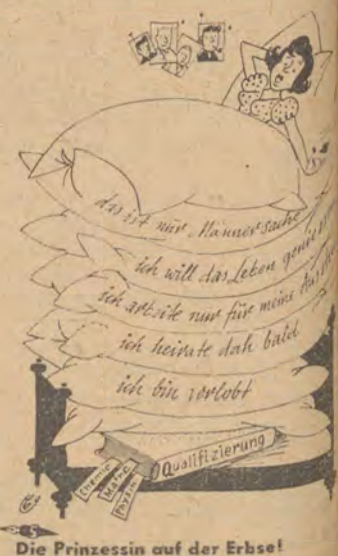 das ist nur Männersache
ich will das Leben
ich arbeite nur für meine
ich heirate doh bald
ich bin verlobt
Qualifizierung
Chemie
Mathe
Physik
5
Die Prinzessin auf der Erbse!